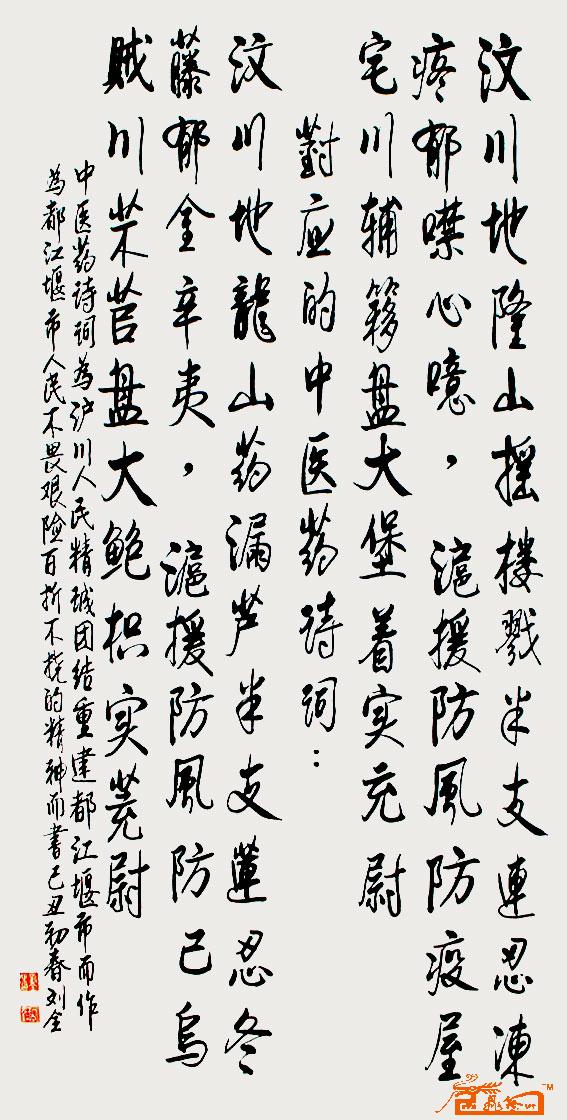 汶川地隆山摇楼戮半支连忍冻
疼郁噤心噫，滬援防風防疫屋
宅川辅簃盘大堡着实充尉
對应的中医药诗词：
汶川地龍山药漏芦半支蓮忍冬
藤郁金辛夷，滬援防風防己烏
賊川芣苢盘大鲍枳实茺尉
中医药诗词為沪川人民精诚团结重建都江堰市而作
為都江堰市人民不畏艰险百折不挠的精神而書己丑初春刘全